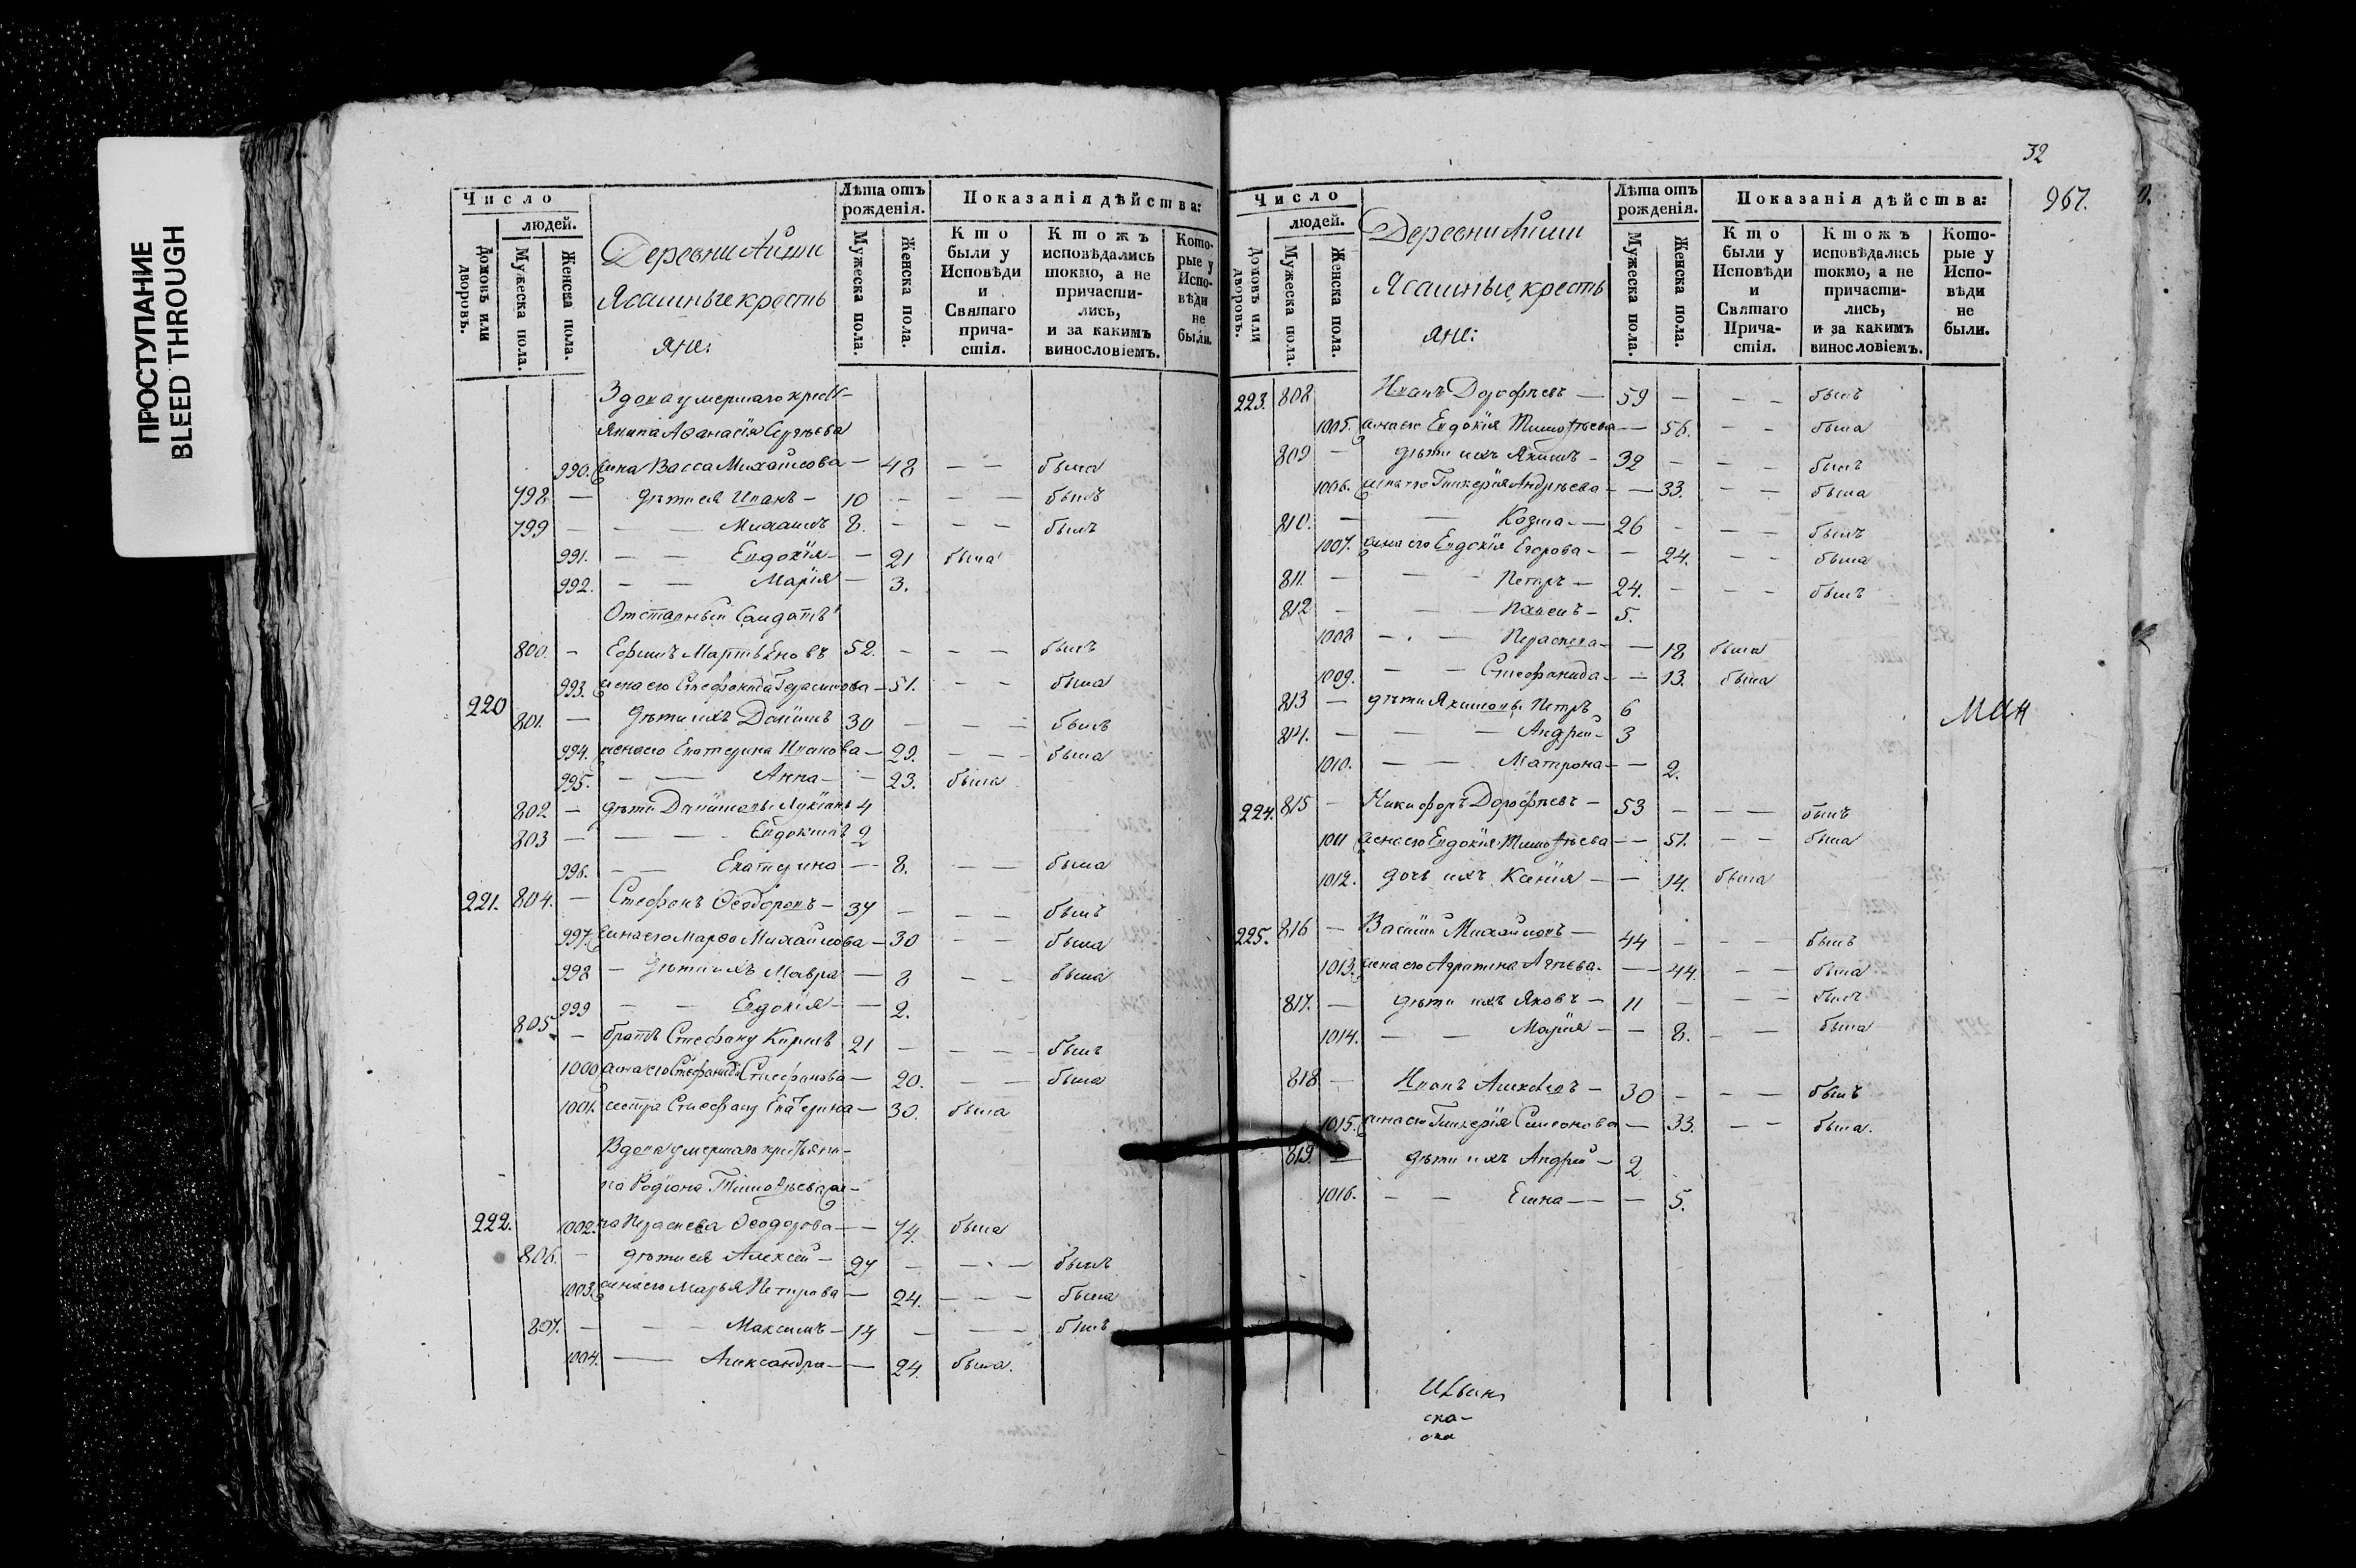 ПРОСТУПАНИЕ
BLEED THROUGH
Число
людей.
Домовъ или дворовъ.
Мужеска пола.
Женска пола.
Деревни Айши
Ясашные кресть
яне:
Лѣта отъ
рожденія.
Мужеска пола.
Женска пола.
Показанія дѣйства:
Кто
были у
Исповѣди
и
Святаго
прича-
стія.
Ктожъ
исповѣдались
токмо, а не
причасти-
лись,
и за какимъ
винословіемъ.
Кото-
рые у
Испо-
вѣди
не
были.
умершаго крест-
янина Аѳанасія Сергѣева
990. жена Васса Михайлова — 48 — — была
798 — дѣти ея Иванъ — 10 — — — былъ
799 — — — Михаилъ 8. — — — былъ
991. — — Евдокія — — 21 была
992. — — Марія — 3.
Отставный Салдатъ
800. — Ефимъ Мартьяновъ 52. — — — былъ
993. жена его Стефанида Герасимова — 51. — — была
220
801. — дѣти ихъ Данiилъ 30 — — — былъ
994. жена его Екатерина Иванова — 29. — — была
995. — — Анна — — 23. была
802 — дѣти Данiиловы Лукiанъ 4
803 — — — Евдокимъ 2
996. — — Екатерина — — 8. — — была
221. 804. — Стефанъ Ѳеодоровъ — 37 — — — былъ
997. жена его Марѳа Михайлова — 30 — — была
998 — дѣти ихъ Мавра — 8 — — была
999 — — Евдокія — — 2.
805 — братъ Стефану Кирилъ 21 — — — былъ
1000 жена его Стефанида Стефанова — 20. — — была
1001. сестра Стефану Екатерина — 30. была
Вдова умершаго крестьяни-
на Родіона Тимоѳѣева же-
222. 1002. на Параскева Ѳеодорова — — 74. была
806. — дѣти ея Алексѣй — 27 — — — былъ
1003. жена его Марья Петрова — 24. — — — была
807. — — — Максимъ — 14 — — — былъ
1004. — Александра — — 24. была.
32
967.
Число
людей.
Домовъ или дворовъ.
Мужеска пола.
Женска пола.
Деревни Айши
Ясашные кресть
яне:
Лѣта отъ
рожденія.
Мужеска пола.
Женска пола.
Показанія дѣйства:
Кто
были у
Исповѣди
и
Святаго
Прича-
стія.
Ктожъ
исповѣдались
токмо, а не
причасти-
лись,
и за какимъ
винословіемъ.
Кото-
рые у
Испо-
вѣди
не
были.
223. 808 Иванъ Дорофѣевъ — 59 — — — былъ
1005. жена его Евдокія Тимоѳѣева — — 56. — — была
809 — дѣти ихъ Якимъ — 32 — — — былъ
1006. жена его Гликерія Андрѣева — — 33. — — была
810. — — Козма — — 26 — — — былъ
1007. жена его Евдокія Егорова — — 24. — — была
811. — — — Петръ — 24. — — — былъ
812 — — — Павелъ — 5.
1008 — — Параскева — — 18 была
1009. — — Стефанида — — 13. была
813 — дѣти Якимовы Петръ 6
814. — — — Андрей — 3
мин
1010. — — Матрона — — 2.
224. 815 — Никифоръ Дорофѣевъ — 53 — — — былъ
1011 жена его Евдокія Тимоѳѣева — — 51. — — была
1012. дочь ихъ Ксенія — — 14. была
225. 816 — Василій Михайловъ — 44 — — — былъ
1013. жена его — — 44. — — была
817. — дѣти ихъ Яковъ — 11 — — — былъ
1014. — — Марія — — 8. — — была
818 — Иванъ — 30 — — — былъ
1015. жена его Гликерія Симеонова — 33. — — была.
819. — дѣти ихъ Андрей — 2
1016. — — Елена — — — 5.